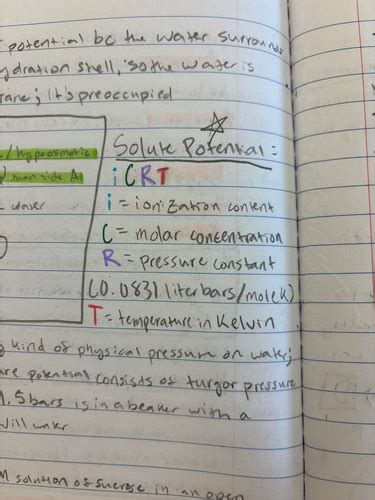 potential bc the water surround
ydration shell, so the water is
rane; it's preoccupied
/hypoosmotic
man side A
Solute Potential =
iCRT
i = ionization content
C = molar concentration
R = pressure constant
(0.0831 liter bars/mole K)
T = temperature in Kelvin
kind of physical pressure on water;
are potential consists of turgor pressure
.5 bars is in a beaker with a
will water
M solution of sucrose in an open